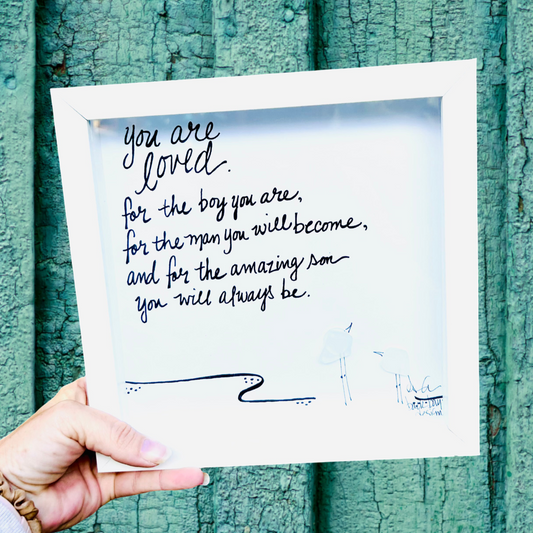 you are
loved.
for the boy you are,
for the man you will become,
and for the amazing son
you will always be.